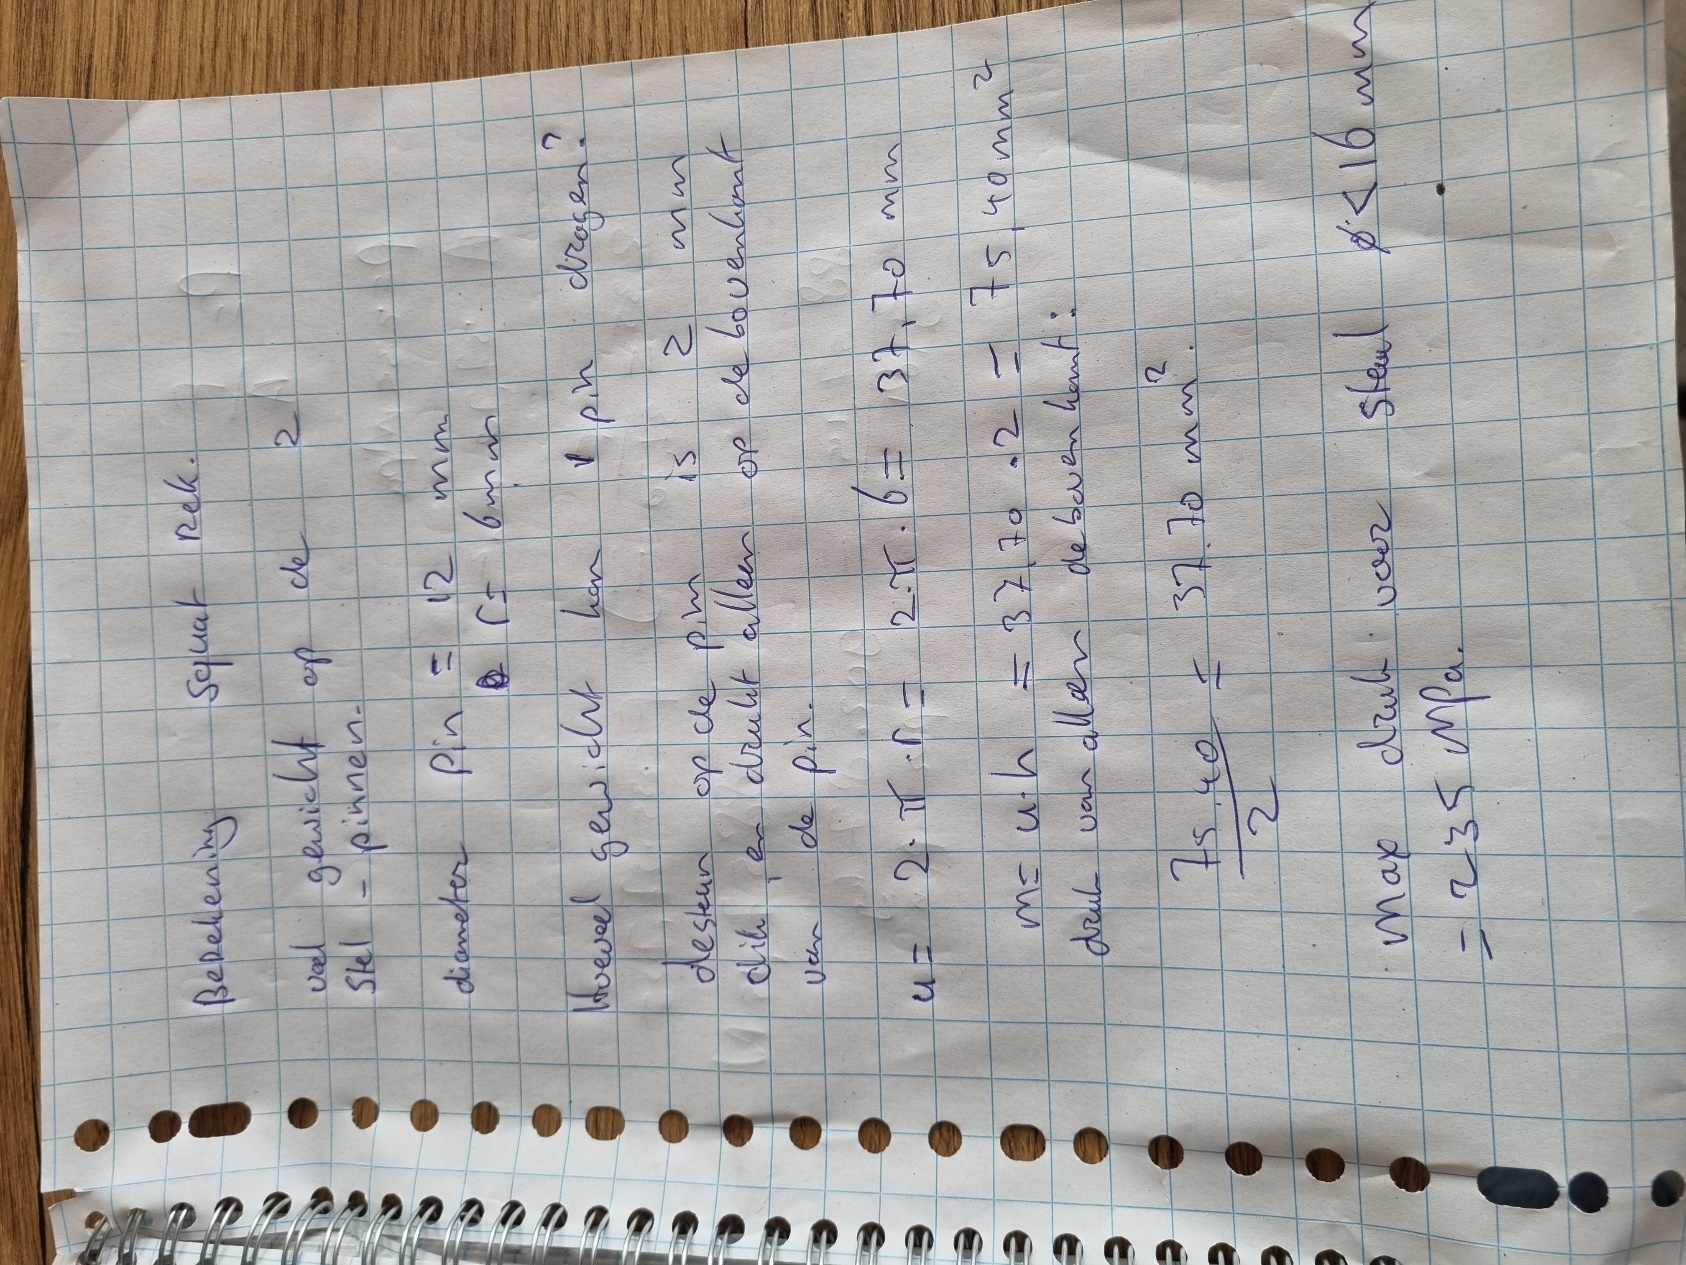 Berekening squat rek.
veel gewicht op de 2
stel - pinnen.
diameter pin = 12 mm
r = 6mm
Hoeveel gewicht kan 1 pin dragen?
desteun op de pin is 2 mm
dik, en drukt alleen op de bovenkant
van de pin.
u = 2·π·r = 2·π·6 = 37,70 mm
m = u·h = 37,70·2 = 75,40 mm²
druk van alleen de bovenkant:
75,40/2 = 37,70 mm².
max druk voor staal ø<16 mm
= 235 Mpa.